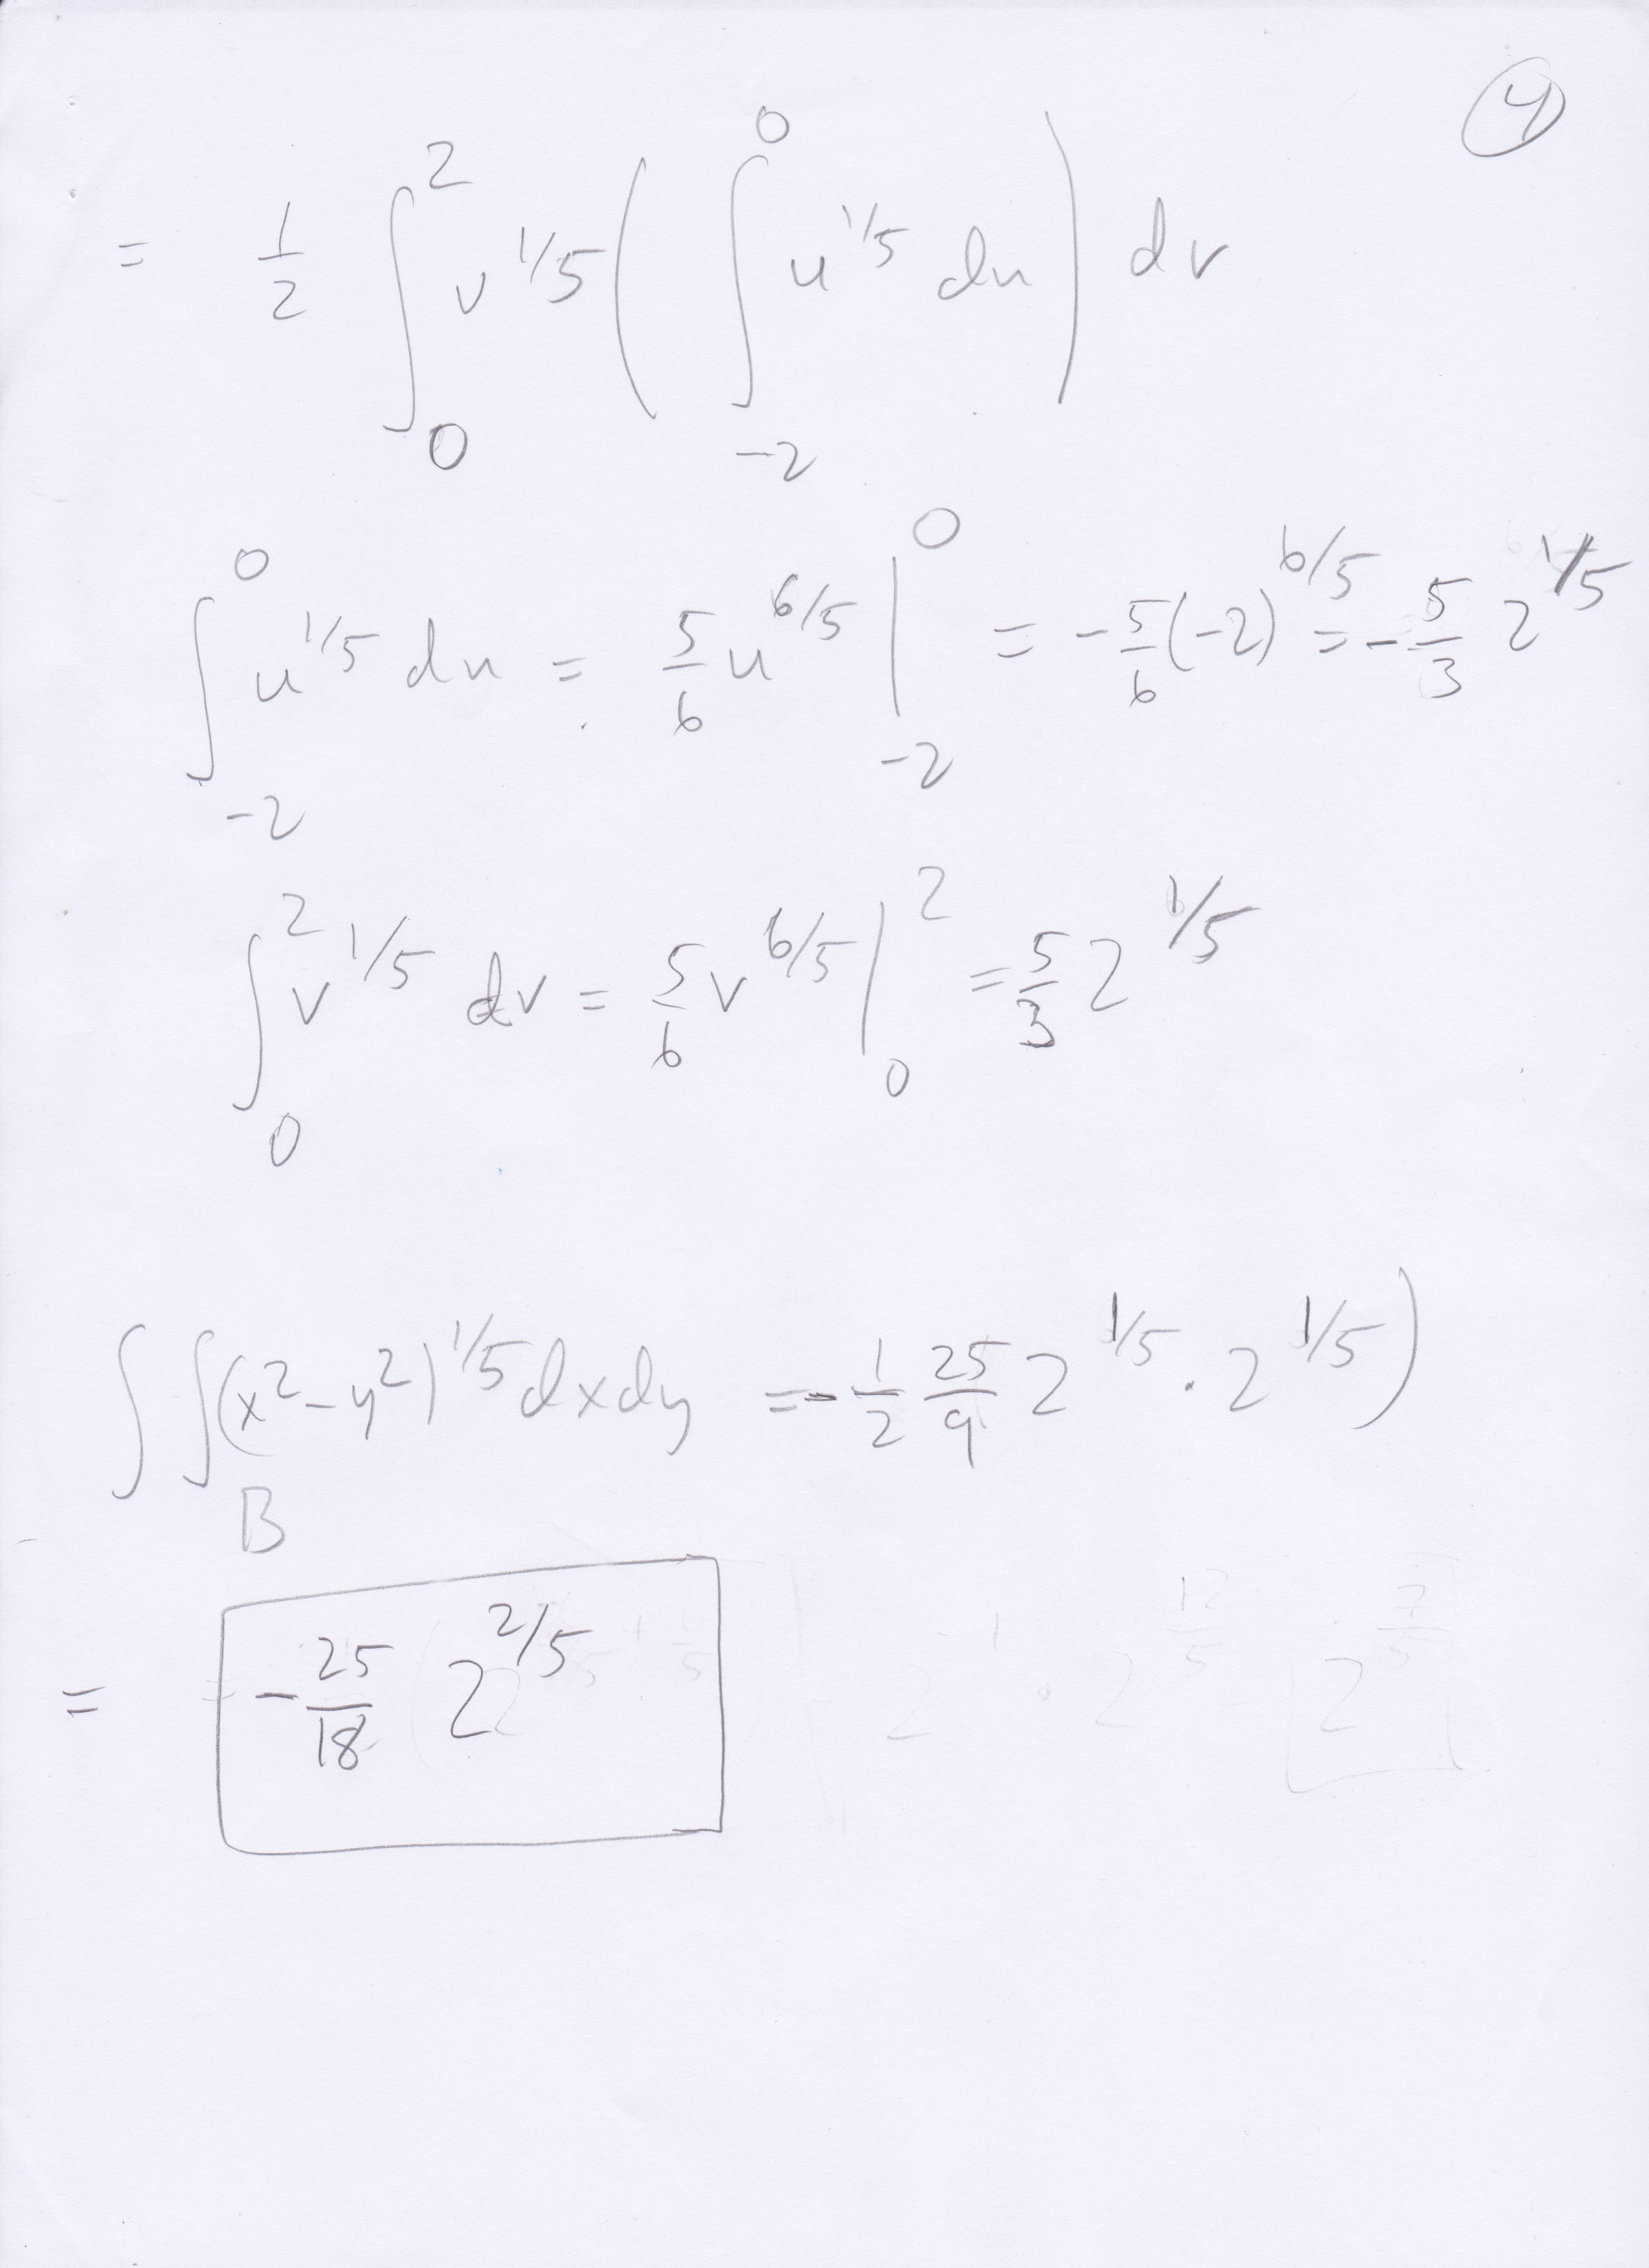 4
= 1/2 ∫_0^2 v^{1/5} ( ∫_{-2}^0 u^{1/5} du ) dv
∫_{-2}^0 u^{1/5} du = 5/6 u^{6/5} |_{-2}^0 = -5/6 (-2)^{6/5} = -5/3 2^{1/5}
∫_0^2 v^{1/5} dv = 5/6 v^{6/5} |_0^2 = 5/3 2^{1/5}
∫∫_B (x^2-y^2)^{1/5} dxdy = -1/2 25/9 2^{1/5} · 2^{1/5} )
= -25/18 2^{2/5}